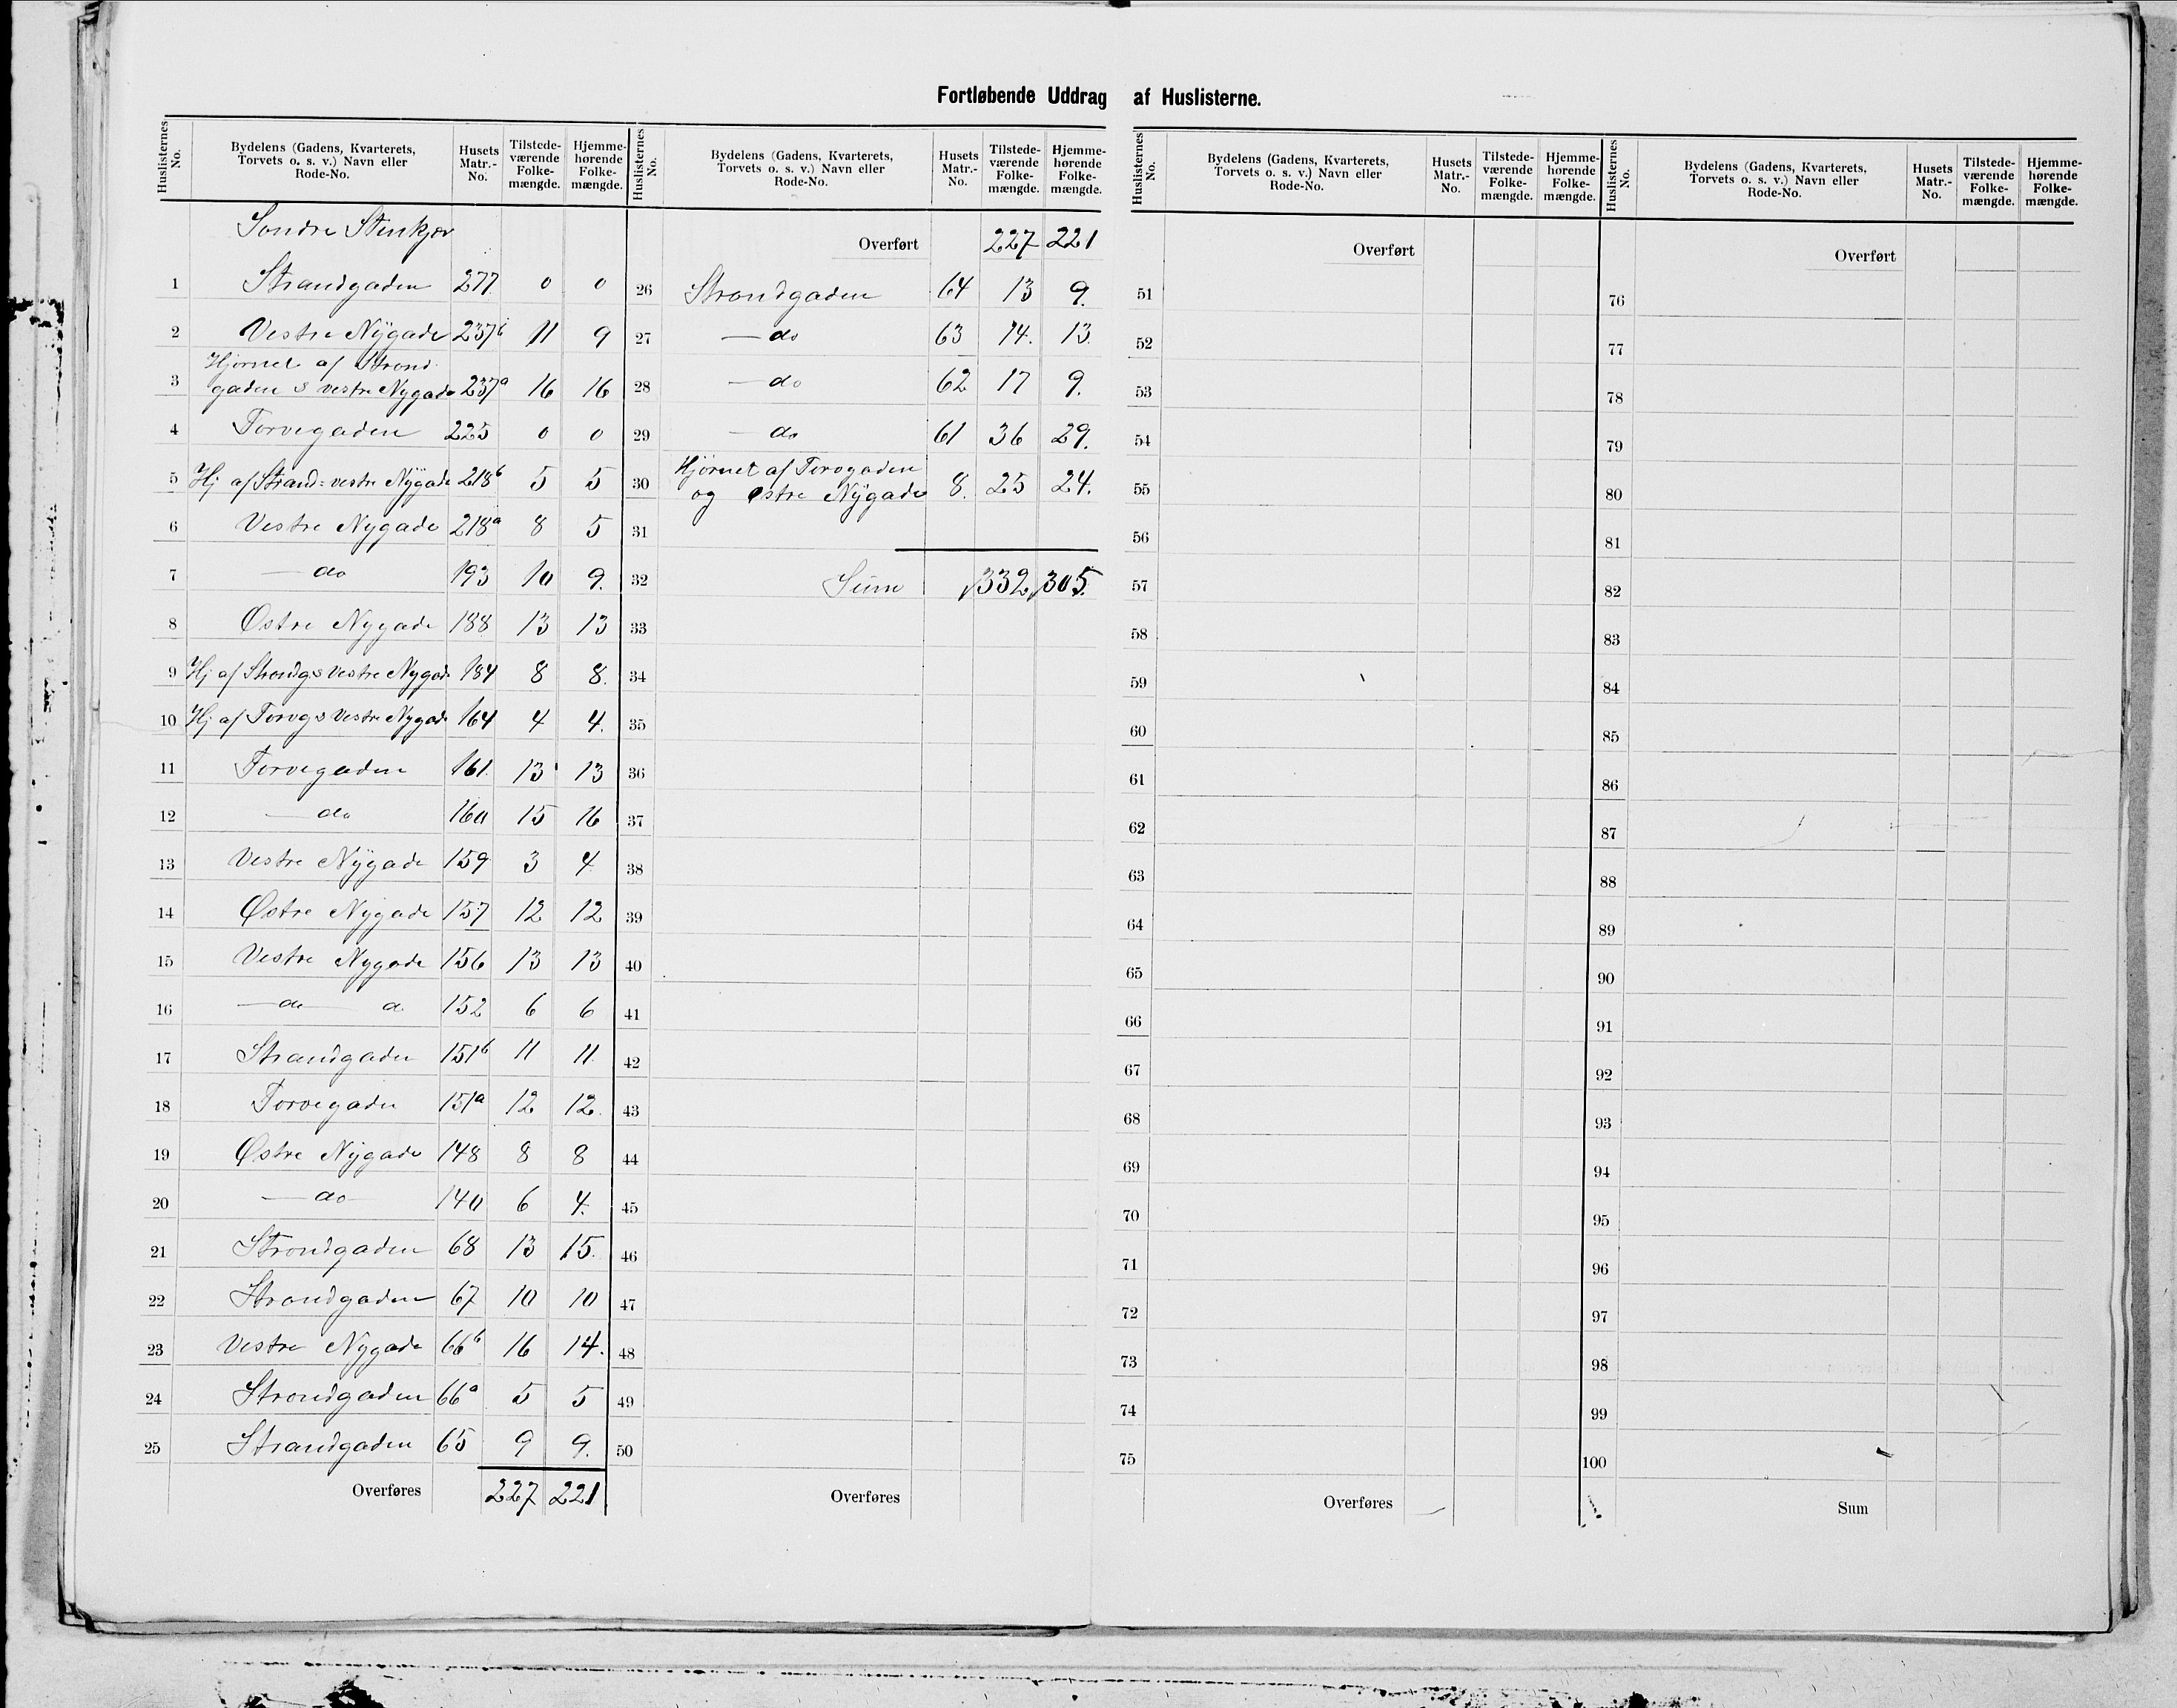 Fortløbende Uddrag af Huslisterne.
Huslisternes No. Bydelens (Gadens, Kvarterets, Torvets o. s. v.) Navn eller Rode-No. Husets Matr.-No. Tilstedeværende Folkemængde. Hjemmehørende Folkemængde.
Søndre Stenkjær
1 Strandgaden 277 0 0
2 Vestre Nygade 237b 11 9
3 Hjørnet af Strand-
gaden & vestre Nygade 237a 16 16
4 Torvegaden 225 0 0
5 Hj af Strand= vestre Nygade 218b 5 5
6 Vestre Nygade 218a 8 5
7 — do 193 10 9.
8 Østre Nygade 188 13 13
9 Hj af Strandg & Vestre Nygade 184 8 8.
10 Hj af Torvg & Vestre Nygade 164 4 4.
11 Torvegaden 161. 13 13
12 — do 160 15 16
13 Vestre Nygade 159 3 4
14 Østre Nygade 157 12 12
15 Vestre Nygade 156 13 13
16 — do — do 152 6 6
17 Strandgaden 151b 11 11
18 Torvegaden 151a 12 12.
19 Østre Nygade 148 8 8
20 — do — 140 6 4.
21 Strandgaden 68 13 15.
22 Strandgaden 67 10 10
23 Vestre Nygade 66b 16 14.
24 Strandgaden 66a 5 5
25 Strandgaden 65 9 9.
Overføres 227 221
Huslisternes No. Bydelens (Gadens, Kvarterets, Torvets o. s. v.) Navn eller Rode-No. Husets Matr.-No. Tilstedeværende Folkemængde. Hjemmehørende Folkemængde.
Overført 227 221
26 Strandgaden 64 13 9.
27 — do 63 14. 13.
28 — do 62 17 9.
29 — do 61 36 29.
30 Hjørnet af Torvgaden
og østre Nygade 8. 25 24.
31
32 Sum 332 305.
33
34
35
36
37
38
39
40
41
42
43
44
45
46
47
48
49
50
Overføres
Huslisternes No. Bydelens (Gadens, Kvarterets, Torvets o. s. v.) Navn eller Rode-No. Husets Matr.-No. Tilstedeværende Folkemængde. Hjemmehørende Folkemængde.
Overført
51
52
53
54
55
56
57
58
59
60
61
62
63
64
65
66
67
68
69
70
71
72
73
74
75
Overføres
Huslisternes No. Bydelens (Gadens, Kvarterets, Torvets o. s. v.) Navn eller Rode-No. Husets Matr.-No. Tilstedeværende Folkemængde. Hjemmehørende Folkemængde.
Overført
76
77
78
79
80
81
82
83
84
85
86
87
88
89
90
91
92
93
94
95
96
97
98
99
100
Sum